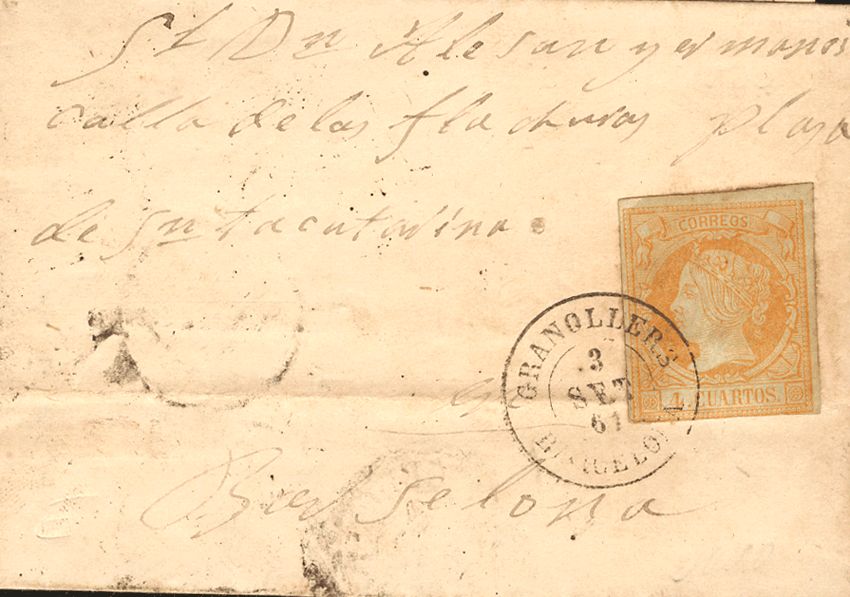 Sr Dn Alesan y ermanos
calla de las fla churas plasa
de Snta catarina.
CORREOS
4 CUARTOS.
GRANOLLERS
3
SET
61
BARCELONA
Barselona